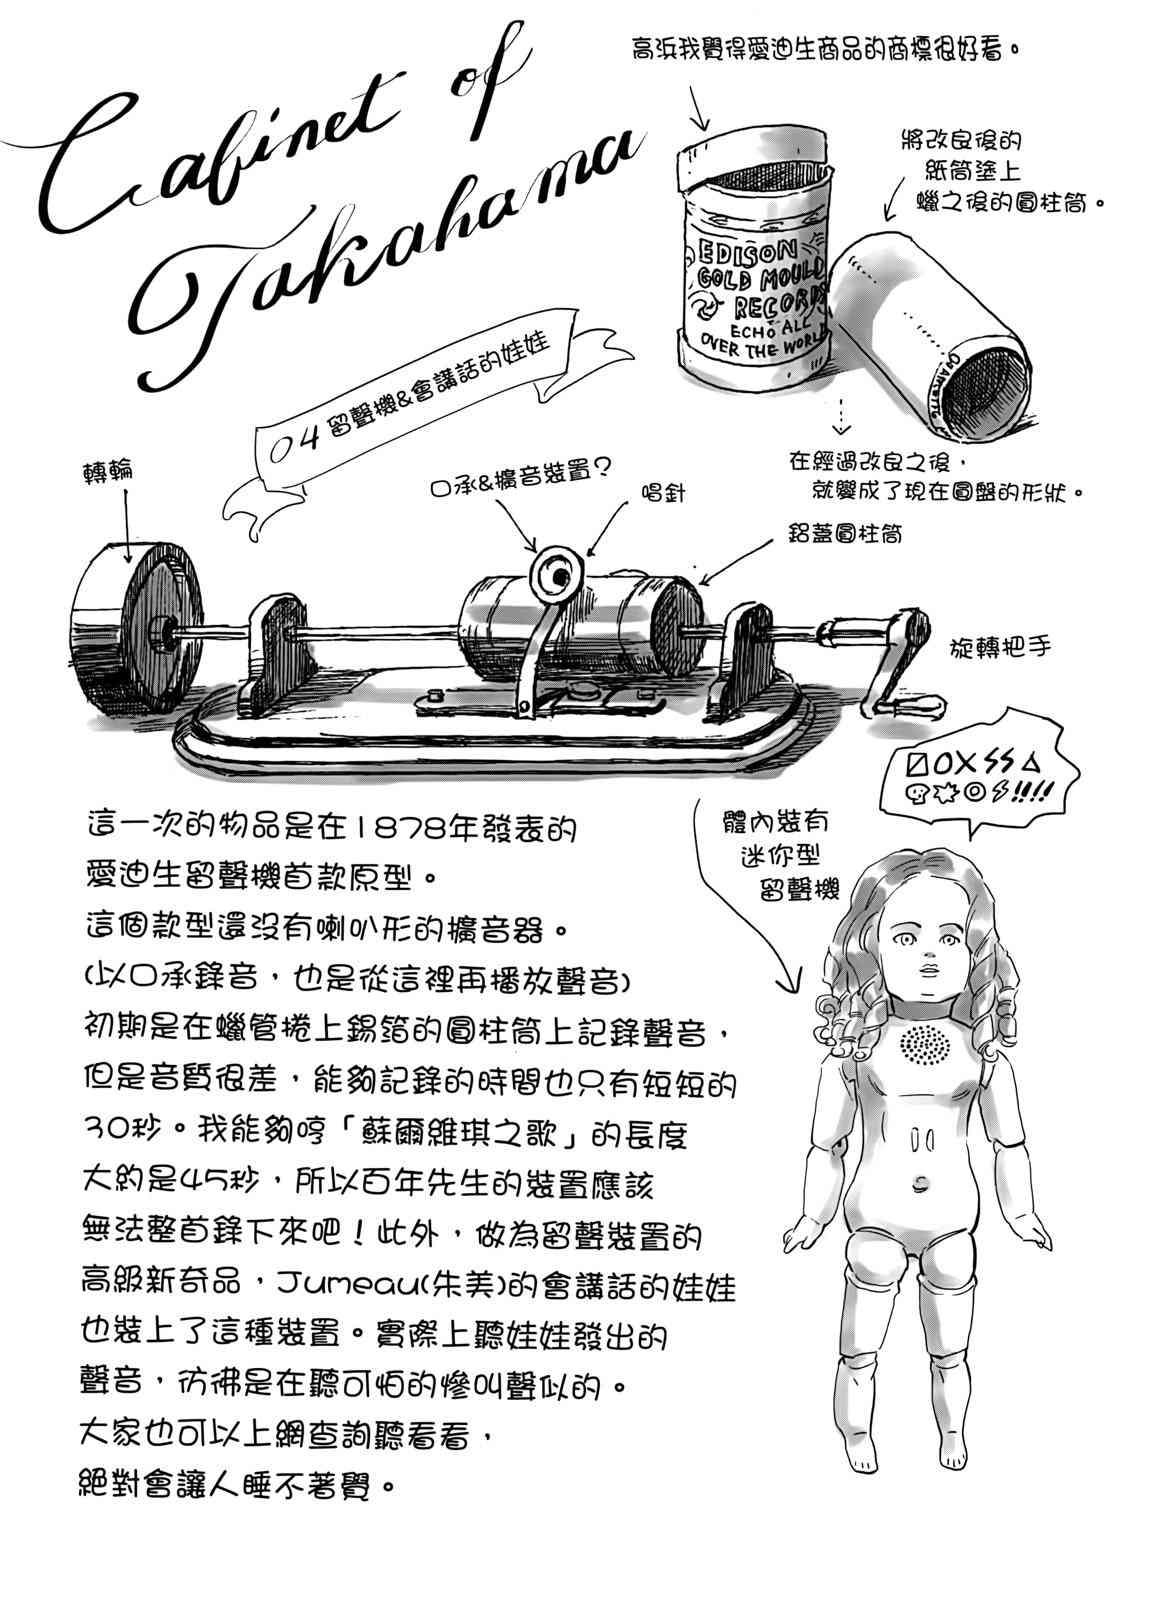 Cabinet of
Takahama
高浜我覺得愛迪生商品的商標很好看。
將改良後的
紙筒塗上
蠟之後的圓柱筒。
EDISON
GOLD MOULD
RECORDS
ECHO ALL
OVER THE WORLD
04 留聲機&會講話的娃娃
在經過改良之後，
就變成了現在圓盤的形狀。
轉輪
口承&擴音裝置？
唱針
鋁蓋圓柱筒
旋轉把手
體內裝有
迷你型
留聲機
這一次的物品是在1878年發表的
愛迪生留聲機首款原型。
這個款型還沒有喇叭形的擴音器。
(以口承錄音，也是從這裡再播放聲音)
初期是在蠟管捲上錫箔的圓柱筒上記錄聲音，
但是音質很差，能夠記錄的時間也只有短短的
30秒。我能夠哼「蘇爾維琪之歌」的長度
大約是45秒，所以百年先生的裝置應該
無法整首錄下來吧！此外，做為留聲裝置的
高級新奇品，Jumeau(朱美)的會講話的娃娃
也裝上了這種裝置。實際上聽娃娃發出的
聲音，彷彿是在聽可怕的慘叫聲似的。
大家也可以上網查詢聽看看，
絕對會讓人睡不著覺。